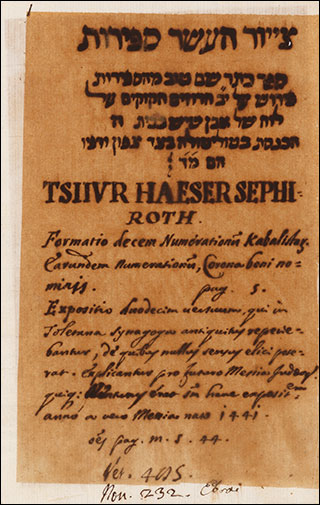 ציור העשר ספירות
ספר כתר שם טוב מהספירות
פירוש על יב חרוזים חקוקים על
לוח של אבן שיש בבית
הכנסת בטוליטולא בצד צפון
הם
TSIIVR HAESER SEPHI-
ROTH.
Formatio decem Numerationũ Kabalisticar.
Earundem Numerationũ, Corona boni no-
minis. pag. 5.
Expositio duodecim versuum, qui in
Toletana synagoga antiquitus reperie-
bantur, de quibus nullus sensus elici pote-
rat. explicantur pro futuro Messia
quiq; erat in hunc
anno a vero Messia nato 1441.
pag. m. s. 44.
Vet. 4015
Nou. 232. Ebrai